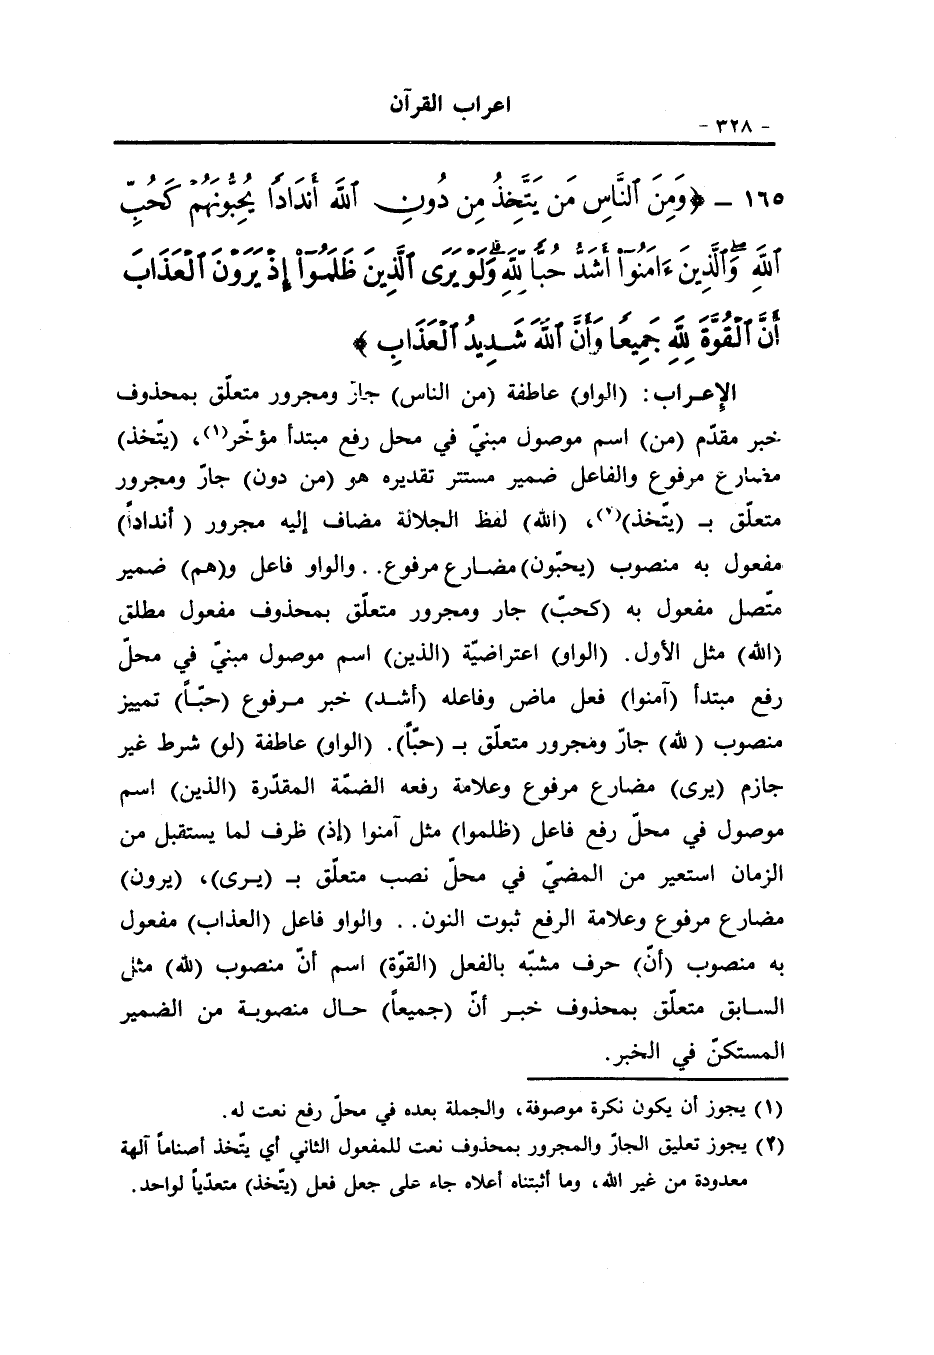 اعراب القرآن
- ٣٢٨ -
١٦٥ - ﴿وَمِنَ ٱلنَّاسِ مَن يَتَّخِذُ مِن دُونِ ٱللَّهِ أَندَادًا يُحِبُّونَهُمْ كَحُبِّ
ٱللَّهِ ۖ وَٱلَّذِينَ ءَامَنُوٓا۟ أَشَدُّ حُبًّا لِّلَّهِ ۗ وَلَوْ يَرَى ٱلَّذِينَ ظَلَمُوٓا۟ إِذْ يَرَوْنَ ٱلْعَذَابَ
أَنَّ ٱلْقُوَّةَ لِلَّهِ جَمِيعًا وَأَنَّ ٱللَّهَ شَدِيدُ ٱلْعَذَابِ ﴾
الإعراب: (الواو) عاطفة (من الناس) جارّ ومجرور متعلّق بمحذوف
خبر مقدّم (من) اسم موصول مبنيّ في محل رفع مبتدأ مؤخّر(١)، (يتّخذ)
مضارع مرفوع والفاعل ضمير مستتر تقديره هو (من دون) جارّ ومجرور
متعلّق بـ (يتّخذ)(٢)، (الله) لفظ الجلالة مضاف إليه مجرور (أنداداً)
مفعول به منصوب (يحبّون) مضارع مرفوع.. والواو فاعل و(هم) ضمير
متّصل مفعول به (كحبّ) جار ومجرور متعلّق بمحذوف مفعول مطلق
(الله) مثل الأول. (الواو) اعتراضيّة (الذين) اسم موصول مبنيّ في محلّ
رفع مبتدأ (آمنوا) فعل ماض وفاعله (أشد) خبر مرفوع (حبّاً) تمييز
منصوب (لله) جارّ ومجرور متعلّق بـ (حبّاً). (الواو) عاطفة (لو) شرط غير
جازم (يرى) مضارع مرفوع وعلامة رفعه الضمّة المقدّرة (الذين) اسم
موصول في محلّ رفع فاعل (ظلموا) مثل آمنوا (إذ) ظرف لما يستقبل من
الزمان استعير من المضيّ في محلّ نصب متعلّق بـ (يرى)، (يرون)
مضارع مرفوع وعلامة الرفع ثبوت النون.. والواو فاعل (العذاب) مفعول
به منصوب (أنّ) حرف مشبّه بالفعل (القوّة) اسم أنّ منصوب (لله) مثل
السابق متعلّق بمحذوف خبر أنّ (جميعاً) حال منصوبة من الضمير
المستكنّ في الخبر.
(١) يجوز أن يكون نكرة موصوفة، والجملة بعده في محلّ رفع نعت له.
(٢) يجوز تعليق الجارّ والمجرور بمحذوف نعت للمفعول الثاني أي يتّخذ أصناماً آلهة
معدودة من غير الله، وما أثبتناه أعلاه جاء على جعل فعل (يتّخذ) متعدّياً لواحد.